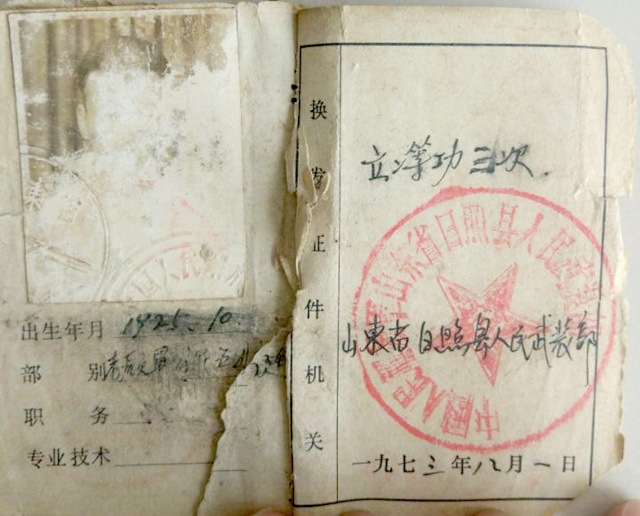 出生年月 1925.10
部别
职务
专业技术
换发证件机关
立功三次.
山东省日照县人民武装部
山东省日照县人民武装部
中国人民解放军
一九七三年八月一日